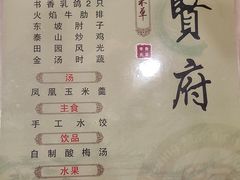 书香乳鸽2只
火焰牛肋排
东坡肘子
泰山炒鸡
田园风光
金汤时蔬
汤
凤凰玉米羹
主食
手工水饺
饮品
自制酸梅汤
水果
賢府